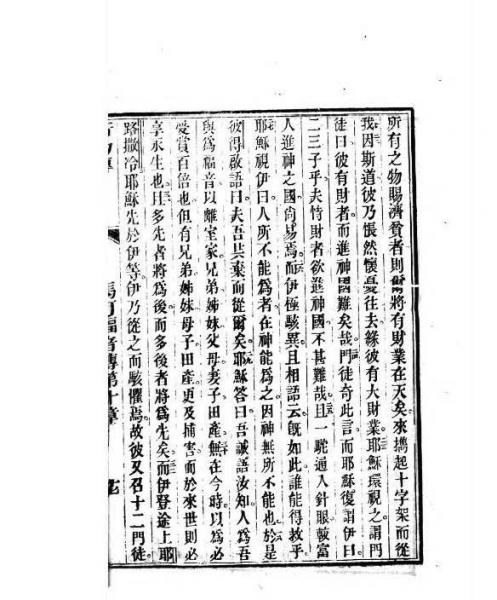 所有之物賜濟貧者則爾將有財業在天矣來攜起十字架而從
我因斯道彼乃悵然懷憂往去緣彼有大財業耶穌環視之謂門
徒曰彼有財者而進神國難矣哉門徒奇此言而耶穌復謂伊曰
二三子乎夫恃財者欲進神國不甚難哉且一駝通入針眼較富
人進神之國尚易焉而伊極駭異且相語云既如此誰能得救乎
耶穌視伊曰人所不能為者在神能為之因神無所不能也於是
彼得啟語曰夫吾共棄而從爾矣耶穌答曰吾誠語汝知人為吾
與為福音以離室家兄弟姊妹父母妻子田產無在今時以為必
受賞百倍也但有兄弟姊妹母子田產更及捕害而於來世則必
享永生也且多先者將為後而多後者將為先矣而伊登途上耶
路撒冷耶穌先於伊等伊乃從之而駭懼焉故彼又召十二門徒
馬可福音傳第十章